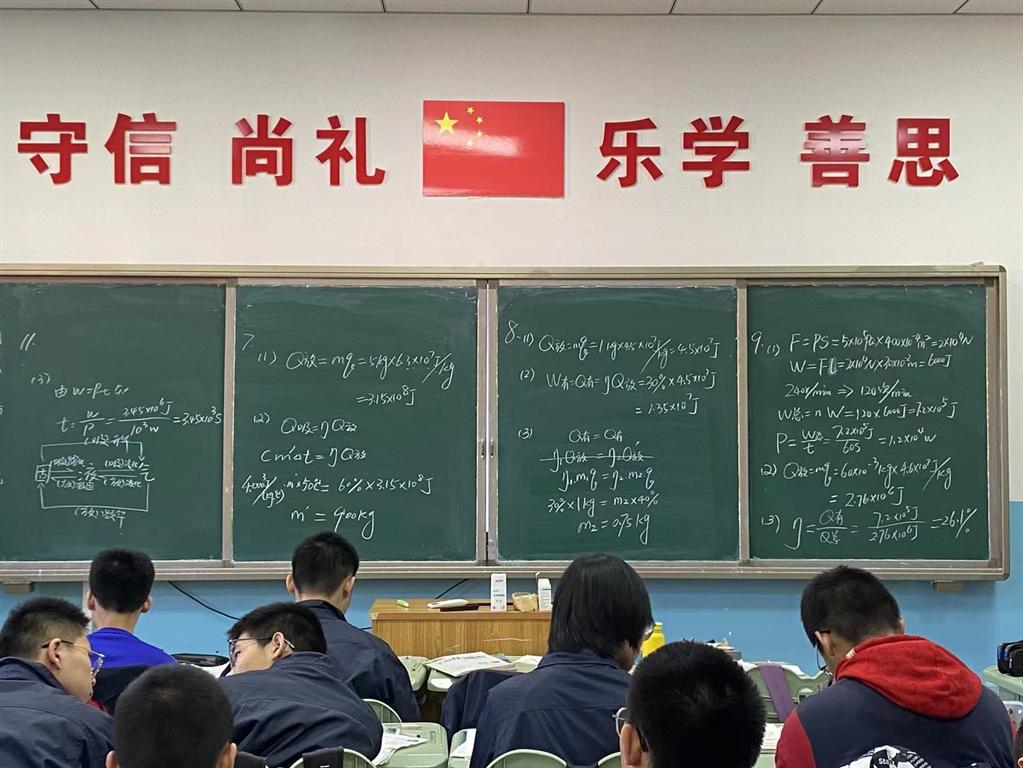 守信 尚礼 乐学 善思
11.
(3)
由W=Pt知
t=W/P=3.45×10⁶J/10³W=3.45×10³S
固 液 气
7.
(1) Q放=mq=5kg×6.3×10⁷J/kg
=3.15×10⁸J
(2) Q吸=ηQ放
cm'Δt=ηQ放
4.2×10³J/(kg·℃)·m'×50℃=60%×3.15×10⁸J
m'=900kg
8.(1) Q放=mq=1kg×4.5×10⁷J/kg=4.5×10⁷J
(2) W有=Q有=ηQ放=30%×4.5×10⁷J
=1.35×10⁷J
(3) Q有=Q有'
η₁Q放=η₂Q放'
η₁m₁q=η₂m₂q
30%×1kg=m₂×40%
m₂=0.75kg
9.(1) F=PS=5×10⁵Pa×400×10⁻⁴m²=2×10⁴N
W=Fl=2×10⁴N×30×10⁻²m=6000J
240r/min => 120次/min
W总=nW=120×6000J=7.2×10⁵J
P=W总/t=7.2×10⁵J/60s=1.2×10⁴W
(2) Q放=mq=60×10⁻³kg×4.6×10⁷J/kg
=2.76×10⁶J
(3) η=Q有/Q总=7.2×10⁵J/2.76×10⁶J=26.1%